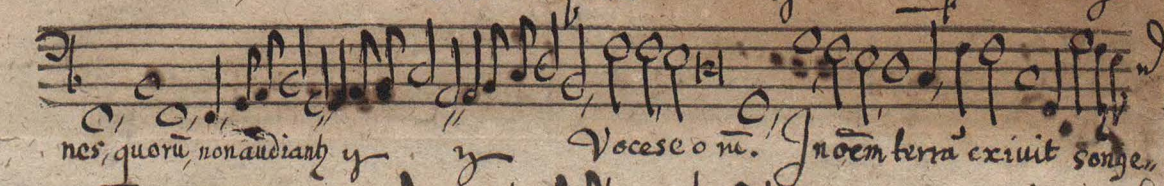 nes, quorũ, non audiantr ij ij Voces eo rũ. In oẽm terrã exiuit sonꝰ e-